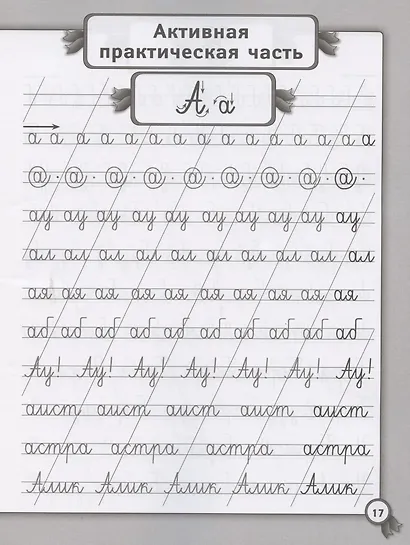 Активная
практическая часть
А а
а а а а а а а а а а а а а а
а · а · а · а · а · а · а · а · а ·
ау ау ау ау ау ау ау ау ау ау
ал ал ал ал ал ал ал ал ал ал
ая ая ая ая ая ая ая ая ая ая
аб аб аб аб аб аб аб аб аб аб
Ау! Ау! Ау! Ау! Ау! Ау! Ау!
аист аист аист аист аист
астра астра астра астра
Алик Алик Алик Алик Алик
17